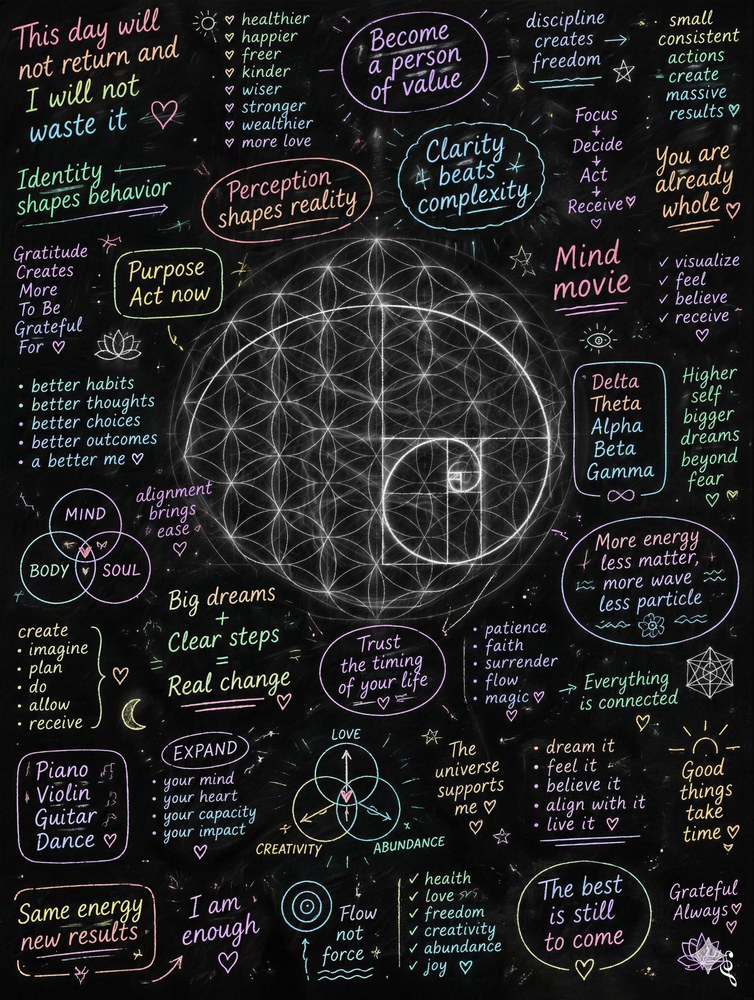 This day will
not return and
I will not
waste it
healthier
happier
freer
kinder
wiser
stronger
wealthier
more love
Become
a person
of value
discipline
creates
freedom
small
consistent
actions
create
massive
results
Identity
shapes behavior
Perception
shapes reality
Clarity
beats
complexity
Focus
Decide
Act
Receive
You are
already
whole
Gratitude
Creates
More
To Be
Grateful
For
Purpose
Act now
Mind
movie
✓ visualize
✓ feel
✓ believe
✓ receive
• better habits
• better thoughts
• better choices
• better outcomes
• a better me
Delta
Theta
Alpha
Beta
Gamma
Higher
self
bigger
dreams
beyond
fear
MIND
BODY
SOUL
alignment
brings
ease
More energy
less matter,
more wave
less particle
create
• imagine
• plan
• do
• allow
• receive
Big dreams
+
Clear steps
=
Real change
Trust
the timing
of your life
• patience
• faith
• surrender
• flow
• magic
Everything
is connected
Piano
Violin
Guitar
Dance
EXPAND
• your mind
• your heart
• your capacity
• your impact
LOVE
CREATIVITY
ABUNDANCE
The
universe
supports
me
• dream it
• feel it
• believe it
• align with it
• live it
Good
things
take
time
Same energy
new results
I am
enough
Flow
not
force
✓ health
✓ love
✓ freedom
✓ creativity
✓ abundance
✓ joy
The best
is still
to come
Grateful
Always